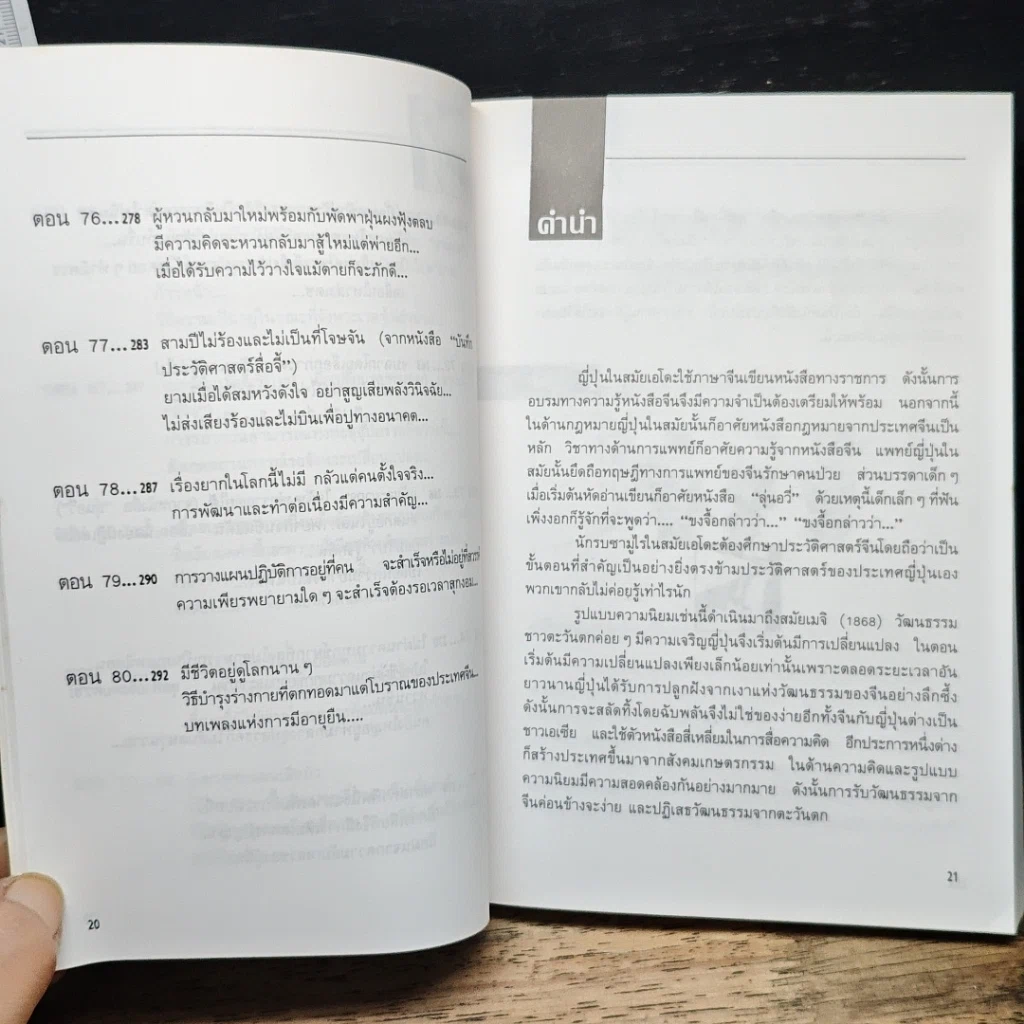 ตอน 76...278 ผู้หวนกลับมาใหม่พร้อมกับพัดพาฝุ่นผงฟุ้งตลบ
มีความคิดจะหวนกลับมาสู้ใหม่แต่พ่ายอีก...
เมื่อได้รับความไว้วางใจแม้ตายก็จะภักดี...
ตอน 77...283 สามปีไม่ร้องและไม่เป็นที่โจษจัน (จากหนังสือ "บันทึก
ประวัติศาสตร์สื่อจี้")
ยามเมื่อได้สมหวังดังใจ อย่าสูญเสียพลังวินิจฉัย...
ไม่ส่งเสียงร้องและไม่บินเพื่อปูทางอนาคต...
ตอน 78...287 เรื่องยากในโลกนี้ไม่มี กลัวแต่คนตั้งใจจริง...
การพัฒนาและทำต่อเนื่องมีความสำคัญ...
ตอน 79...290 การวางแผนปฏิบัติการอยู่ที่คน จะสำเร็จหรือไม่อยู่ที่สวรรค์
ความเพียรพยายามใด ๆ จะสำเร็จต้องรอเวลาสุกงอม...
ตอน 80...292 มีชีวิตอยู่ดูโลกนาน ๆ
วิธีบำรุงร่างกายที่ตกทอดมาแต่โบราณของประเทศจีน...
บทเพลงแห่งการมีอายุยืน....
20
คำนำ
ญี่ปุ่นในสมัยเอโดะใช้ภาษาจีนเขียนหนังสือทางราชการ ดังนั้นการ
อบรมทางความรู้หนังสือจีนจึงมีความจำเป็นต้องเตรียมให้พร้อม นอกจากนี้
ในด้านกฎหมายญี่ปุ่นในสมัยนั้นก็อาศัยหนังสือกฎหมายจากประเทศจีนเป็น
หลัก วิชาทางด้านการแพทย์ก็อาศัยความรู้จากหนังสือจีน แพทย์ญี่ปุ่นใน
สมัยนั้นยึดถือทฤษฎีทางการแพทย์ของจีนรักษาคนป่วย ส่วนบรรดาเด็ก ๆ
เมื่อเริ่มต้นหัดอ่านเขียนก็อาศัยหนังสือ "ลุ่นอวี่" ด้วยเหตุนี้เด็กเล็ก ๆ ที่ฟัน
เพิ่งงอกก็รู้จักที่จะพูดว่า.... "ขงจื้อกล่าวว่า..." "ขงจื้อกล่าวว่า..."
นักรบซามูไรในสมัยเอโดะต้องศึกษาประวัติศาสตร์จีนโดยถือว่าเป็น
ขั้นตอนที่สำคัญเป็นอย่างยิ่งตรงข้ามประวัติศาสตร์ของประเทศญี่ปุ่นเอง
พวกเขากลับไม่ค่อยรู้เท่าไรนัก
รูปแบบความนิยมเช่นนี้ดำเนินมาถึงสมัยเมจิ (1868) วัฒนธรรม
ชาวตะวันตกค่อย ๆ มีความเจริญญี่ปุ่นจึงเริ่มต้นมีการเปลี่ยนแปลง ในตอน
เริ่มต้นมีความเปลี่ยนแปลงเพียงเล็กน้อยเท่านั้นเพราะตลอดระยะเวลาอัน
ยาวนานญี่ปุ่นได้รับการปลูกฝังจากเงาแห่งวัฒนธรรมของจีนอย่างลึกซึ้ง
ดังนั้นการจะสลัดทิ้งโดยฉับพลันจึงไม่ใช่ของง่ายอีกทั้งจีนกับญี่ปุ่นต่างเป็น
ชาวเอเซีย และใช้ตัวหนังสือสี่เหลี่ยมในการสื่อความคิด อีกประการหนึ่งต่าง
ก็สร้างประเทศขึ้นมาจากสังคมเกษตรกรรม ในด้านความคิดและรูปแบบ
ความนิยมมีความสอดคล้องกันอย่างมากมาย ดังนั้นการรับวัฒนธรรมจาก
จีนค่อนข้างจะง่าย และปฏิเสธวัฒนธรรมจากตะวันตก
21